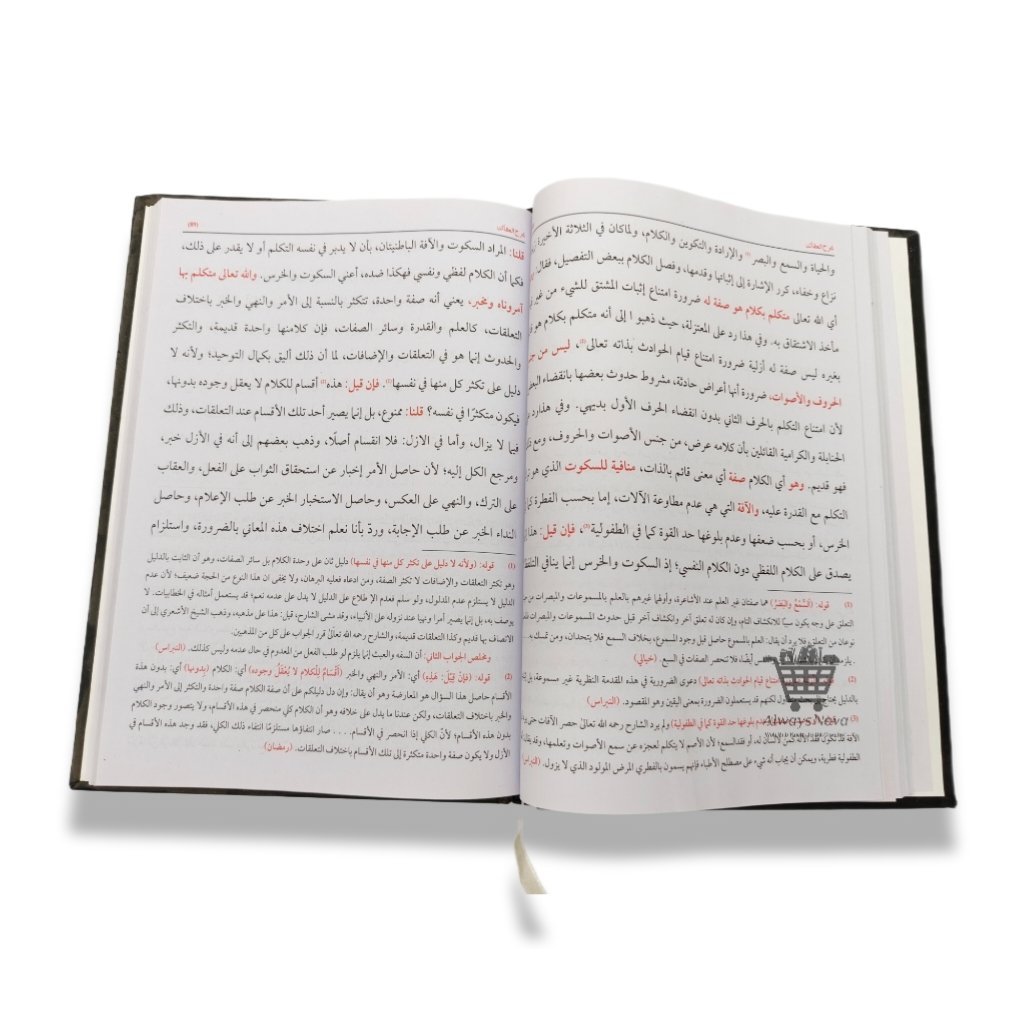 شرح العقائد
والحياة والسمع والبصر(1) والإرادة والتكوين والكلام، ولما كان في الثلاثة الأخيرة
نزاع وخفاء، كرر الإشارة إلى إثباتها وقدمها، وفصل الكلام ببعض التفصيل، فقال:
أي الله تعالى متكلم بكلام هو صفة له ضرورة امتناع إثبات المشتق للشيء من غير
مأخذ الاشتقاق به. وفي هذا رد على المعتزلة، حيث ذهبوا إلى أنه متكلم بكلام هو
بغيره ليس صفة له أزلية ضرورة امتناع قيام الحوادث بذاته تعالى(2)، ليس من
الحروف والأصوات، ضرورة أنها أعراض حادثة، مشروط حدوث بعضها بانقضاء
لأن امتناع التكلم بالحرف الثاني بدون انقضاء الحرف الأول بديهي. وفي هذا رد
الحنابلة والكرامية القائلين بأن كلامه عرض، من جنس الأصوات والحروف، ومع
فهو قديم. وهو أي الكلام صفة أي معنى قائم بالذات، منافية للسكوت الذي هو
التكلم مع القدرة عليه، والآفة التي هي عدم مطاوعة الآلات، إما بحسب الفطرة كما
الخرس، أو بحسب ضعفها وعدم بلوغها حد القوة كما في الطفولية(3)، فإن قيل: هذا
يصدق على الكلام اللفظي دون الكلام النفسي؛ إذ السكوت والخرس إنما ينافي التلفظ
(1) قوله: (السَّمْعُ وَالبَصَرُ) هما صفتان غير العلم عند الأشاعرة، وأولهما غيرهم بالعلم بالمسموعات والمبصرات من
التعلق على وجه يكون سببًا للانكشاف التام، وإن كان له تعلق آخر وانكشاف آخر قبل حدوث المسموعات والمبصرات
نوعان من التعلق، فلا يرد أن يقال: العلم بالمسموع حاصل قبل وجود المسموع، بخلاف السمع فلا يتحدان، ومن تمسك به
يلزمه أيضًا، فلا تنحصر الصفات في السبع. (خيالي)
(2) امتناع قيام الحوادث بذاته تعالى) دعوى الضرورية في هذه المقدمة النظرية غير مسموعة،
بالدليل لكنهم قد يستعملون الضرورة بمعنى اليقين وهو المقصود. (النبراس)
(3) عدم بلوغها حد القوة كما في الطفولية) ولم يرد الشارح رحمه الله تعالى حصر الآفات
الآفة قد تكون لفقد الآلة كمن لا لسان له، أو فقد السمع؛ لأن الأصم لا يتكلم لعجزه عن سمع الأصوات وتعلمها،
الطفولية فطرية، ويمكن أن يجاب أنه شيء على مصطلح الأطباء فإنهم يسمون بالفطري المرض المولود الذي لا يزول. (النبراس)
AlwaysNova
شرح العقائد (89)
قلنا: المراد السكوت والآفة الباطنيتان، بأن لا يدبر في نفسه التكلم أو لا يقدر على ذلك،
فكما أن الكلام لفظي ونفسي فهكذا ضده، أعني السكوت والخرس. والله تعالى متكلم بها
آمر وناه ومخبر، يعني أنه صفة واحدة، تتكثر بالنسبة إلى الأمر والنهي والخبر باختلاف
التعلقات، كالعلم والقدرة وسائر الصفات، فإن كلا منها واحدة قديمة، والتكثر
والحدوث إنما هو في التعلقات والإضافات، لما أن ذلك أليق بكمال التوحيد؛ ولأنه لا
دليل على تكثر كل منها في نفسها(1). فإن قيل: هذه(2) أقسام للكلام لا يعقل وجوده بدونها،
فيكون متكثرًا في نفسه؟ قلنا: ممنوع، بل إنما يصير أحد تلك الأقسام عند التعلقات، وذلك
فيما لا يزال، وأما في الازل: فلا انقسام أصلًا، وذهب بعضهم إلى أنه في الأزل خبر،
ومرجع الكل إليه؛ لأن حاصل الأمر إخبار عن استحقاق الثواب على الفعل، والعقاب
على الترك، والنهي على العكس، وحاصل الاستخبار الخبر عن طلب الإعلام، وحاصل
النداء الخبر عن طلب الإجابة، وردّ بأنا نعلم اختلاف هذه المعاني بالضرورة، واستلزام
(1) قوله: (ولأنه لا دليل على تكثر كل منها في نفسها) دليل ثان على وحدة الكلام بل سائر الصفات، وهو أن الثابت بالدليل
وهو تكثر التعلقات والإضافات لا تكثر الصفة، ومن ادعاه فعليه البرهان، ولا يخفى ان هذا النوع من الحجة ضعيف؛ لأن عدم
الدليل لا يستلزم عدم المدلول، ولو سلم فعدم الإطلاع على الدليل لا يدل على عدمه نعم؛ قد يستعمل أمثاله في الخطابيات. لا
يوصف به، بل إنما يصير أمرا ونهيا عند نزوله على الأنبياء، وقد مشى الشارح، قيل: هذا على مذهبه، وذهب الشيخ الأشعري إلى أن
الاتصاف بها قديم وكذا التعلقات قديمة، والشارح رحمه الله تعالىٰ قرر الجواب على كل من المذهبين.
وملخص الجواب الثاني: أن السفه والعبث إنما يلزم لو طلب الفعل من المعدوم في حال عدمه وليس كذلك. (النبراس)
(2) قوله: (فَإِنْ قِيْلَ: هَذِهِ) أي: الأمر والنهي والخبر. (أَقْسَامٌ لِلْكَلَامِ لَا يُعْقَلُ وجوده) أي: الكلام (بِدونها) أي: بدون هذه
الأقسام حاصل هذا السؤال هو المعارضة وهو أن يقال: وإن دل دليلكم على أن صفة الكلام صفة واحدة والتكثر إلى الأمر والنهي
والخبر باختلاف التعلقات، ولكن عندنا ما يدل على خلافه وهو أن الكلام كلي منحصر في هذه الأقسام، ولا يتصور وجود الكلام
بدون هذه الأقسام؛ لأنّ الكلي إذا انحصر في الأقسام.... صار انتفاؤها مستلزمًا انتفاء ذلك الكلي، فقد وجد هذه الأقسام في
الأزل ولا يكون صفة واحدة متكثرة إلى تلك الأقسام باختلاف التعلقات. (رمضان)